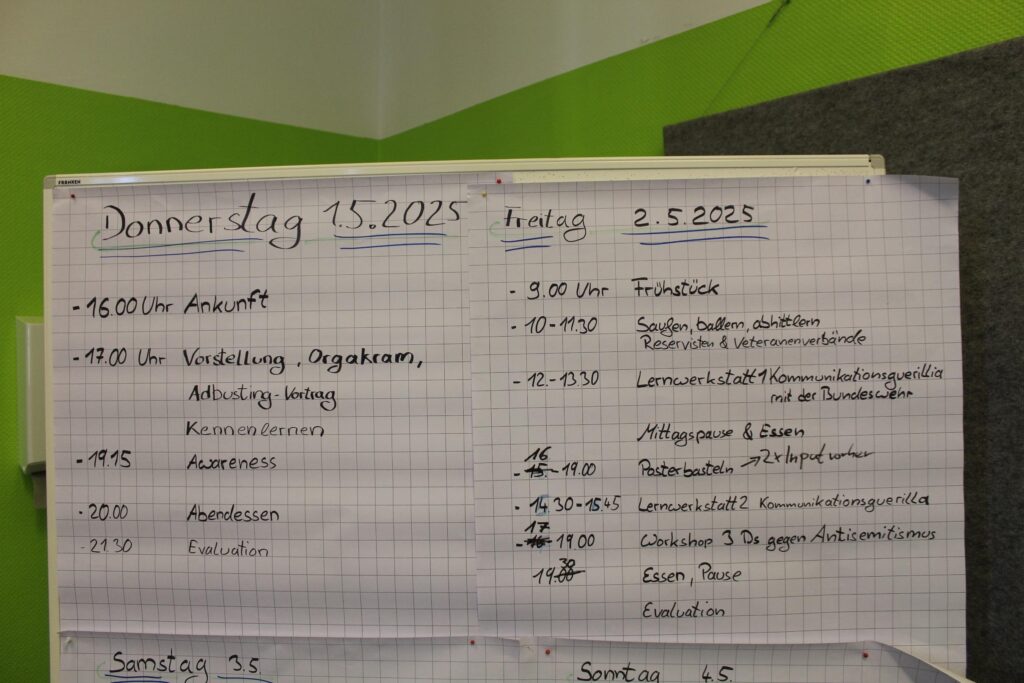 FRANKEN
Donnerstag 1.5.2025
- 16.00 Uhr Ankunft
- 17.00 Uhr Vorstellung, Orgakram,
Adbusting-Vortrag
Kennenlernen
- 19.15 Awareness
- 20.00 Abendessen
- 21.30 Evaluation
Freitag 2.5.2025
- 9.00 Uhr Frühstück
- 10-11.30 Saufen, ballern, abhittlern
Reservisten & Veteranenverbände
- 12.-13.30 Lernwerkstatt 1 Kommunikationsguerillia
mit der Bundeswehr
Mittagspause & Essen
16
- 15.-19.00 Posterbasteln → 2x Input vorher
- 14.30-15.45 Lernwerkstatt 2 Kommunikationsguerilla
17
- 16-19.00 Workshop 3 Ds gegen Antisemitismus
30
19.00 Essen, Pause
Evaluation
Samstag 3.5.
Sonntag 4.5.